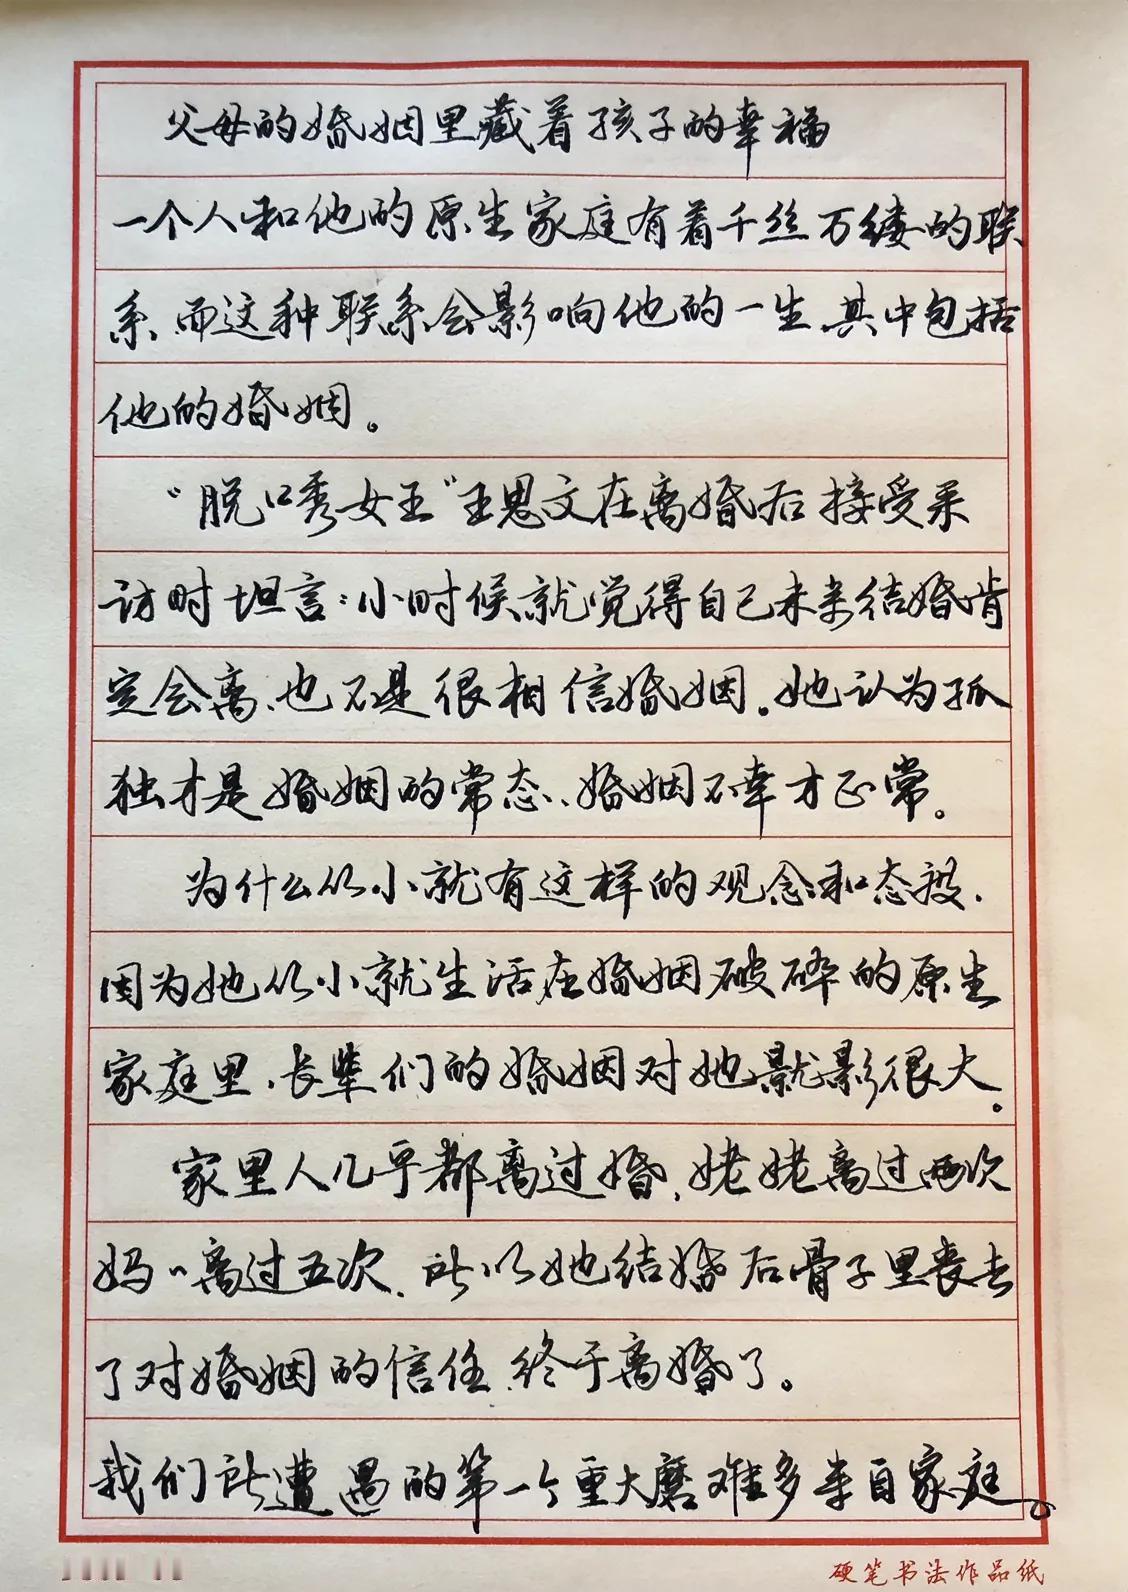 父母的婚姻里藏着孩子的幸福
一个人和他的原生家庭有着千丝万缕的联
系、而这种联系会影响他的一生、其中包括
他的婚姻。
“脱口秀女王”王思文在离婚后接受采
访时坦言：小时候就觉得自己未来结婚肯
定会离、也不是很相信婚姻。她认为孤
独才是婚姻的常态、婚姻不幸才正常。
为什么从小就有这样的观念和态度、
因为她从小就生活在婚姻破碎的原生
家庭里、长辈们的婚姻对她影很大。
家里人几乎都离过婚、姥姥离过两次
妈妈离过五次、所以她结婚后骨子里丧去
了对婚姻的信任、终于离婚了。
我们所遭遇的第一个重大磨难多来自家庭。
硬笔书法作品纸